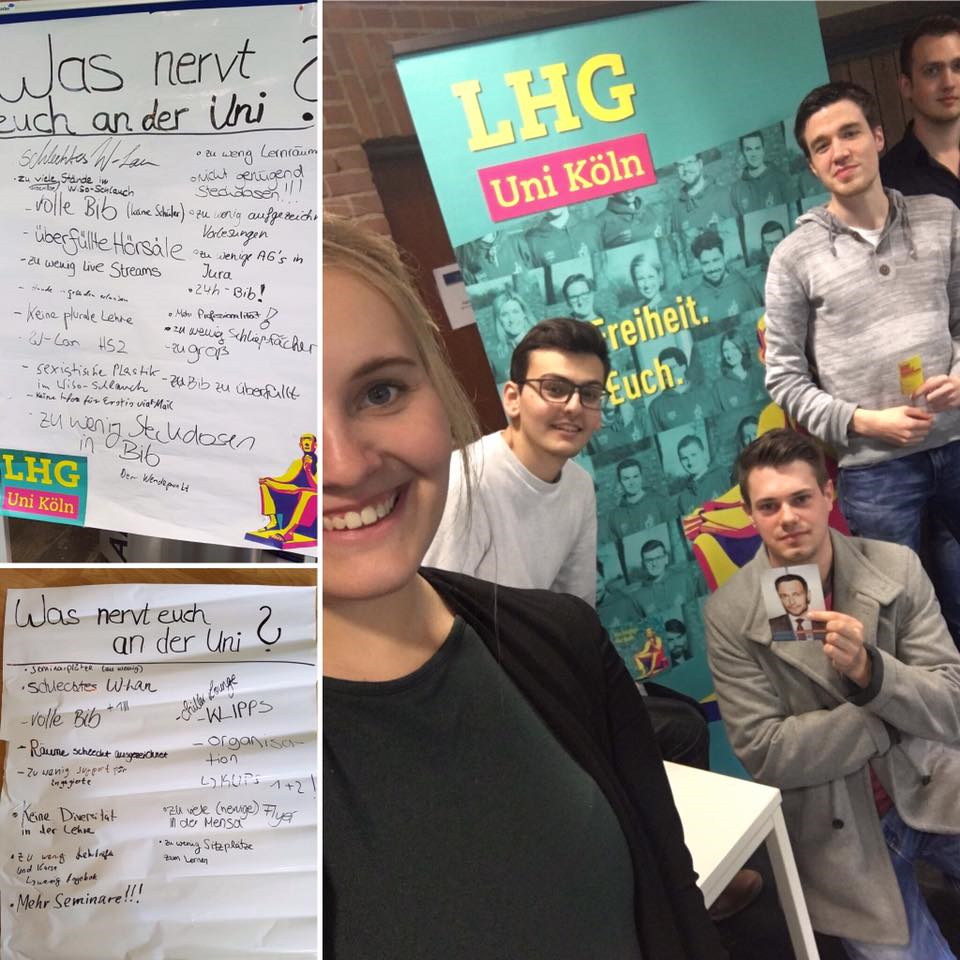 Was nervt
euch an der Uni ?
schlechtes W-Lan
• zu viele Stände im
Wiso-Schlauch
- volle Bib (keine Schüler)
- überfüllte Hörsäle
- zu wenig Live Streams
- Keine plurale Lehre
W-Lan HS2
- sexistische Plastik
im Wiso-Schlauch
- Keine Infos für Erstis via Mail
- zu wenig Steckdosen
in Bib
• zu wenig Lernräum
• Nicht genügend
Steckdosen!!!
• zu wenig aufgezeich
Vorlesungen
• zu wenige AG's in
Jura
• 24h - Bib!
• Mehr Professionalität!
• zu wenig Schließfächer
- zu groß
- zu Bib zu überfüllt
Der Wendepunkt
LHG
Uni Köln
Was nervt euch
an der Uni ?
• Seminarplätze (zu wenig)
• schlechtes W-Lan
- volle Bib +1111
- Räume schlecht ausgezeichnet
- Zu wenig support für
Engagierte
• Keine Diversität
in der Lehre
• zu wenig
und Kurse
• Mehr Seminare!!!
- Lounge
- KLIPPS
- Organisa-
tion
↳ KLIPS 1+2!
• zu viele (nervige) Flyer
in der Mensa
• zu wenig Sitzplätze
zum Lernen
LHG
Uni Köln
Freiheit.
Euch.